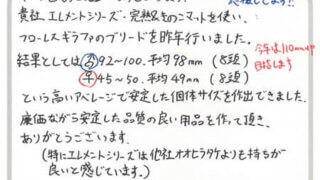 貴社、エレメントシリーズ、完熟きのこマットを使い、
フローレスギラファのブリードを昨年行いました。
結果としては♂92～100、平均98mm（8頭）
今年は110mmup
目指します
♀45～50、平均49mm（8頭）
という高いアベレージで安定した個体サイズを作出できました。
廉価ながら安定した品質の良い用品を作って頂き、
ありがとうございます。
（特にエレメントシリーズは他社オオヒラタケよりも持ちが
良いと感じています。）